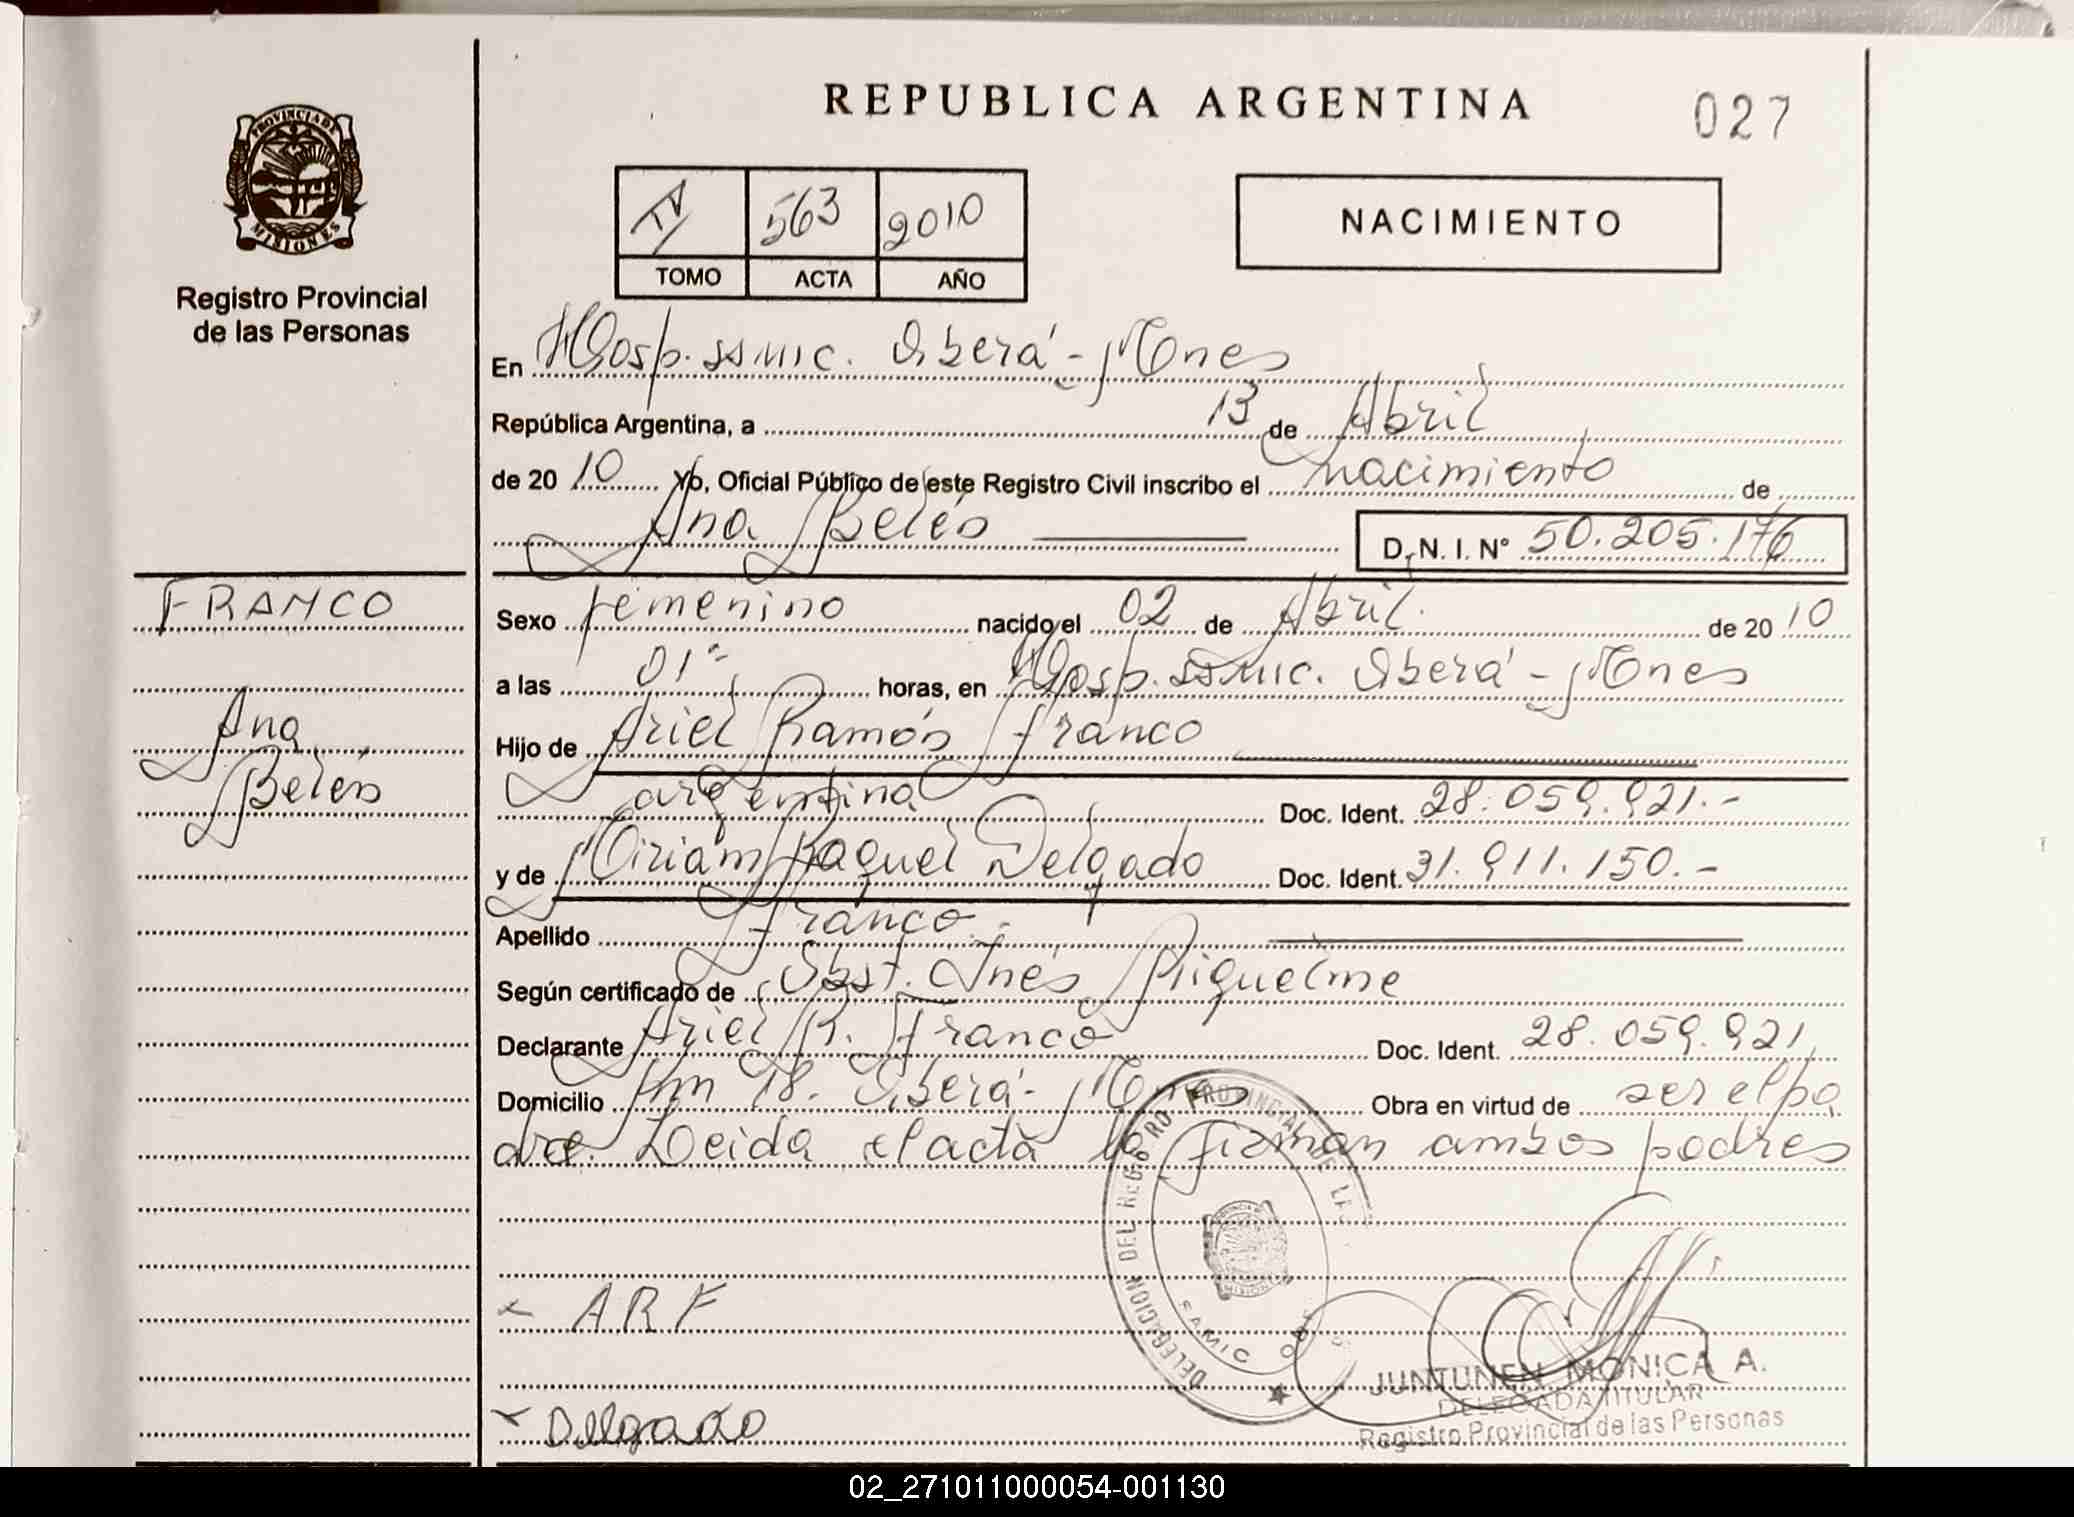 REPUBLICA ARGENTINA
027
PROVINCIA DE
MISIONES
Registro Provincial
de las Personas
IV 563 2010
TOMO ACTA AÑO
NACIMIENTO
En Hosp. ssmic. Oberá - Mnes
República Argentina, a 13 de Abril
de 20 10 Yo, Oficial Público de este Registro Civil inscribo el nacimiento de
Ana Belén
D. N. I. Nº 50.205.176
FRANCO
Ana
Belén
Sexo femenino nacido el 02 de Abril. de 20 10
a las 01 horas, en Hosp. ssmic. Oberá - Mnes
Hijo de Ariel Ramón Franco
argentina Doc. Ident. 28.059.921.-
y de Miriam Raquel Delgado Doc. Ident. 31.911.150.-
Apellido Franco.-
Según certificado de Obst. Inés Riquelme
Declarante Ariel R. Franco Doc. Ident. 28.059.921
Domicilio Km 18. Oberá - Mnes Obra en virtud de ser el pa
dre. Leida el acta la firman ambos padres
DELEGACION DEL REGISTRO PROVINCIAL DE LAS
SAMIC
ARF
Delgado
JUNTUNEN MONICA A.
DELEGADA TITULAR
Registro Provincial de las Personas
02_271011000054-001130